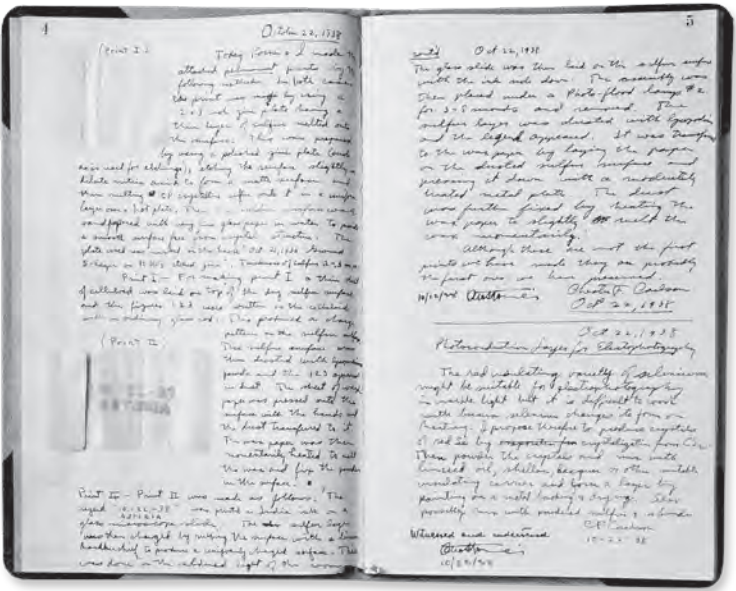 4
October 22, 1938
(Print I)
Today Kornei & I made the
attached permanent prints by the
following method. In both cases
the print was made by using a
2 x 3 inch zinc plate having a
thin layer of sulfur melted onto
the surface. This was prepared
by using a polished zinc plate (such
as is used for etchings), etching the surface slightly in
dilute nitric acid to form a matte surface and
then melting CP crystalline sulfur onto it in a uniform
layer over a hot plate. Then surface was
sandpapered with in water to produce
a smooth surface free from crystal structure. The
plate used was marked on the back " Oct 21, 1938
Print I - For making print I a thin sheet
of celluloid was laid on top of the dry sulfur surface
and the figures 1 2 3 were written on the celluloid
with an ordinary glass rod. This produced a charge
(Print II)
pattern on the sulfur surface
The sulfur surface was
then dusted with lycopodium
powder and the 123 appeared
in dust. The sheet of wax
paper was pressed onto the
surface with the hands and
the dust transferred to it.
The wax paper was then
momentarily heated to melt
the wax and fix the powder
in the surface.
Print II - Print II was made as follows: The
legend "10.-22.-38 ASTORIA" was printed in India ink on a
glass microscope slide. The sulfur layer
was then charged by rubbing the surface with a linen
handkerchief to produce a uniformly charged surface. This
was done in the subdued light of the room
5
cont'd Oct 22, 1938
The glass slide was then laid on the sulfur surface
with the ink side down. The assembly was
then placed under a Photo-flood lamp #2
for seconds and removed. The
sulfur layer was dusted with lycopodium
and the legend appeared. It was transferred
to the wax paper by laying the paper
on the dusted sulfur surface and
pressing it down with a moderately
heated metal plate. The dust
was further fixed by heating the
wax paper to slightly melt the
wax momentarily.
Although these are not the first
prints we have made they are probably
the first ones we have preserved.
Chester F. Carlson
Oct 22, 1938
Oct 22, 1938
Photoconductive Layer for Electrophotography
The red insulating variety of selenium
might be suitable for electrophotography
in visible light but it is difficult to work
with because selenium changes its form on
heating. I propose therefore to produce crystals
of red Se by crystallization from CS2.
Then powder the crystals and mix with
linseed oil, shellac, lacquer or other suitable
insulating carrier and form a layer by
painting on a metal backing & drying. Also
possibly mix with powdered sulfur &
CF Carlson
Witnessed and understood
10-22-38
10/22/38